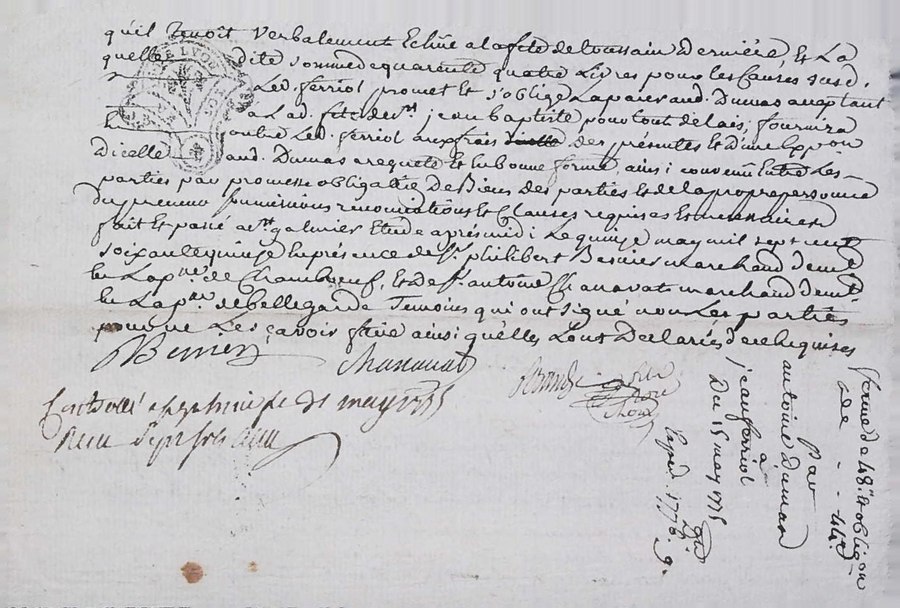 qu'il Tenoit Verbalement Echüe a la fete de toussain Derniere, Et La
quelle dite somme de quarente quatre Livres pour les Causes susd.
Led. ferriol promet et s'oblige La paier aud. Dumas au plutant
a La d. fete de st. jean baptiste pour tout delais, fournira
outre Led. ferriol aux frais des presentes et d'une Exp.on
Dicelle aud. Dumas a requete et En bonne forme, ainsi convenu Entre Les
parties par promesse obligation De Biens des parties et de la propre personne
du preneur soumissions renonciations et Clauses requises et necessaires
fait et passé a st. galmier Etude apres midi Le quinze may mil sept cent
soixante quinze En presence de s.r philibert Bernier marchand dem.t
En La p.sse de Chambœuf, et De s.r antoine Chanavat marchand dem.t
En La p.sse de bellegarde Temoins qui ont signé non Les parties
pour ne Le sçavoir faire ainsi qu'elles L'ont Declaré de ce Enquises
Bernier
Chanavat
Controllé a st galmier le 31 may 1775
Reçu
ferme de 48.lt et obligon
de - 44.lt
Par
antoine Dumas
a
jean ferriol
Du 15 may 1775
Exped. 1776.